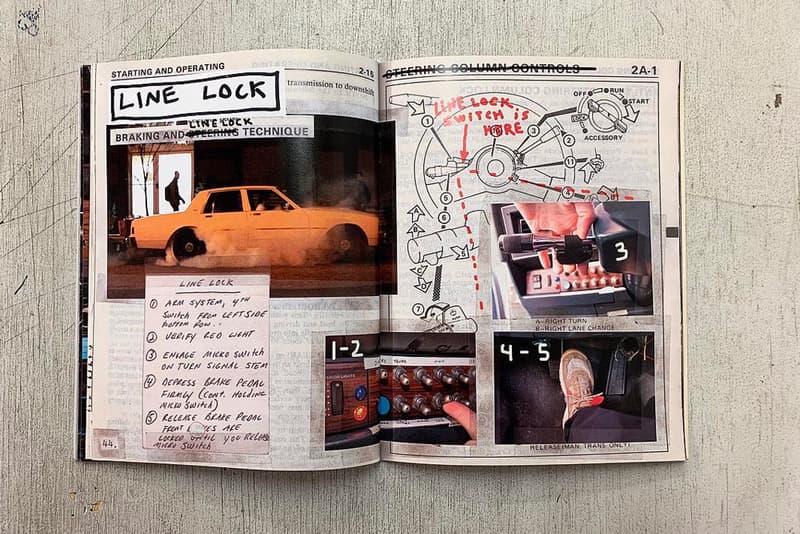 STARTING AND OPERATING
2-16
LINE LOCK
transmission to downshift
LINE LOCK
BRAKING AND STEERING TECHNIQUE
LINE LOCK
① ARM SYSTEM, 4TH
SWITCH FROM LEFT SIDE
BOTTOM ROW..
② VERIFY RED LIGHT
③ ENGAGE MICRO SWITCH
ON TURN SIGNAL STEM
④ DEPRESS BRAKE PEDAL
FIRMLY (CONT. HOLDING
MICRO SWITCH)
⑤ RELEASE BRAKE PEDAL
FRONT
LOCKED UNTIL YOU RELEASE
MICRO SWITCH
44.
1-2
STEERING COLUMN CONTROLS
2A-1
LINE LOCK
SWITCH IS
HERE
OFF
RUN
START
LOCK
ACCESSORY
1
3
11
4
5
6
7
A
B
C
D
5
3
A-RIGHT TURN
B-RIGHT LANE CHANGE
4-5
RELEASE(MAN. TRANS ONLY)